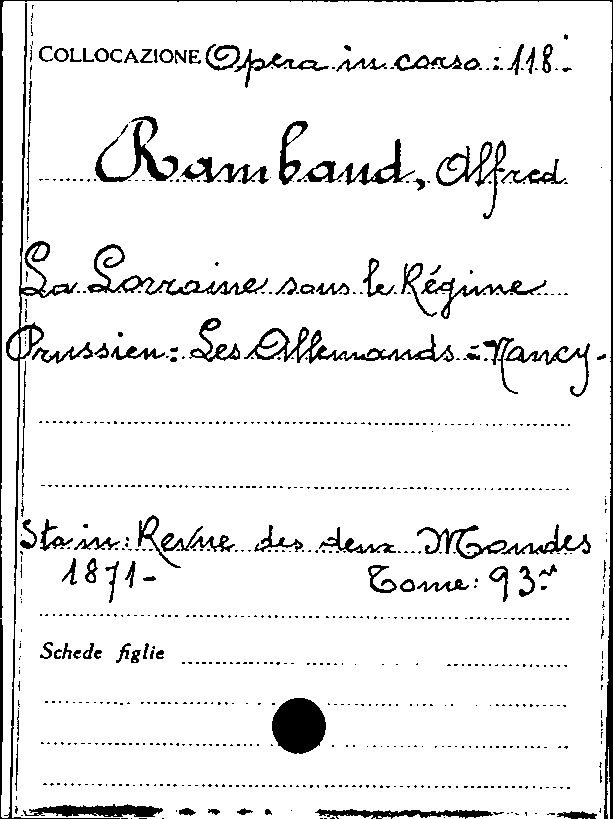 COLLOCAZIONE Opera in corso: 118.
Rambaud, Alfred
La Lorraine sous le Régime
Prussien: Les Allemands = Nancy-
Sta in: Revue des deux Mondes
1871- Tome: 93
Schede figlie